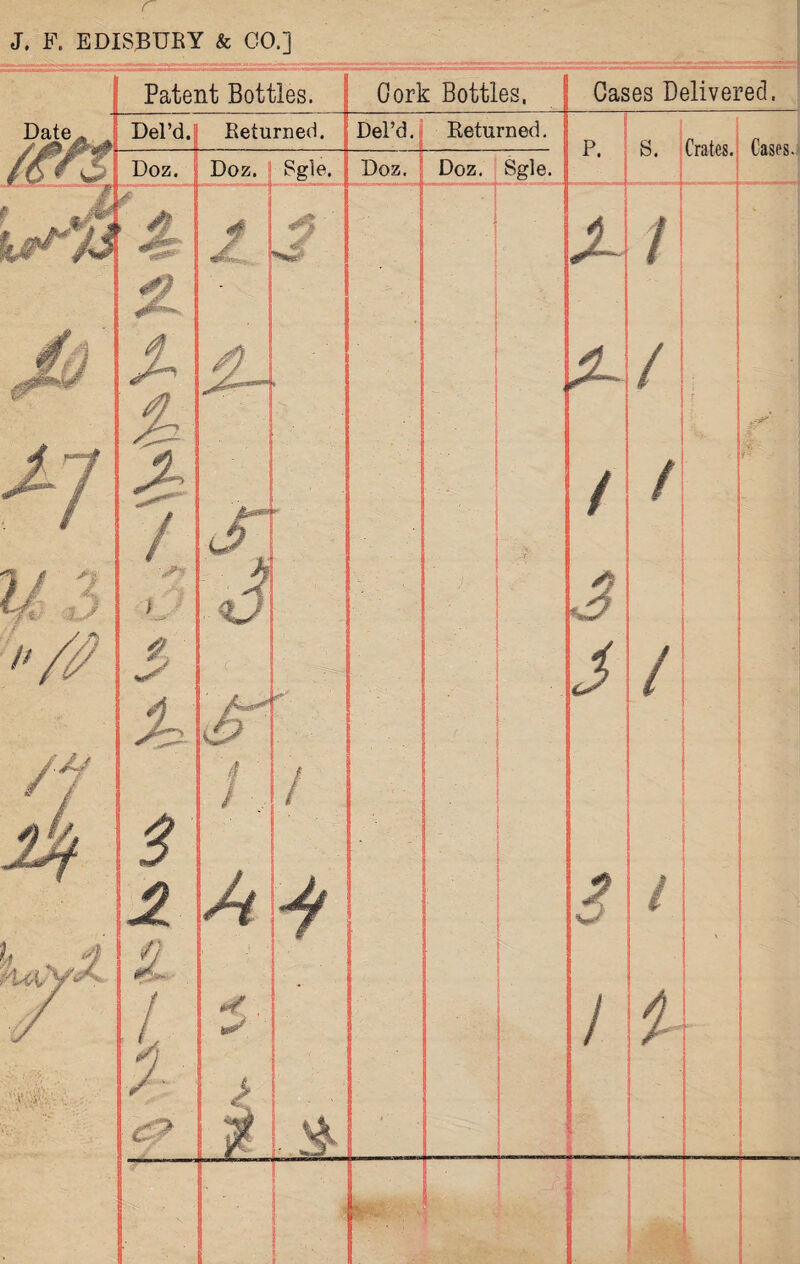 J. F. EDISBURY & CO.]
Patent Bottles. Cork Bottles. Cases Delivered.
Date Del’d. Returned. Del’d. Returned. P. S. Crates. Cases.
Doz. Doz. Sgle. Doz. Doz. Sgle.
13 2 2 3 2 1
2
20 2 2 2 1
2
27 2 1 1
1 5
3 3 3 3
" 10 3 3 1
2 5
17 1 1
24 3
2 4 4 3 1
May 2 2
1 3 1 2
2